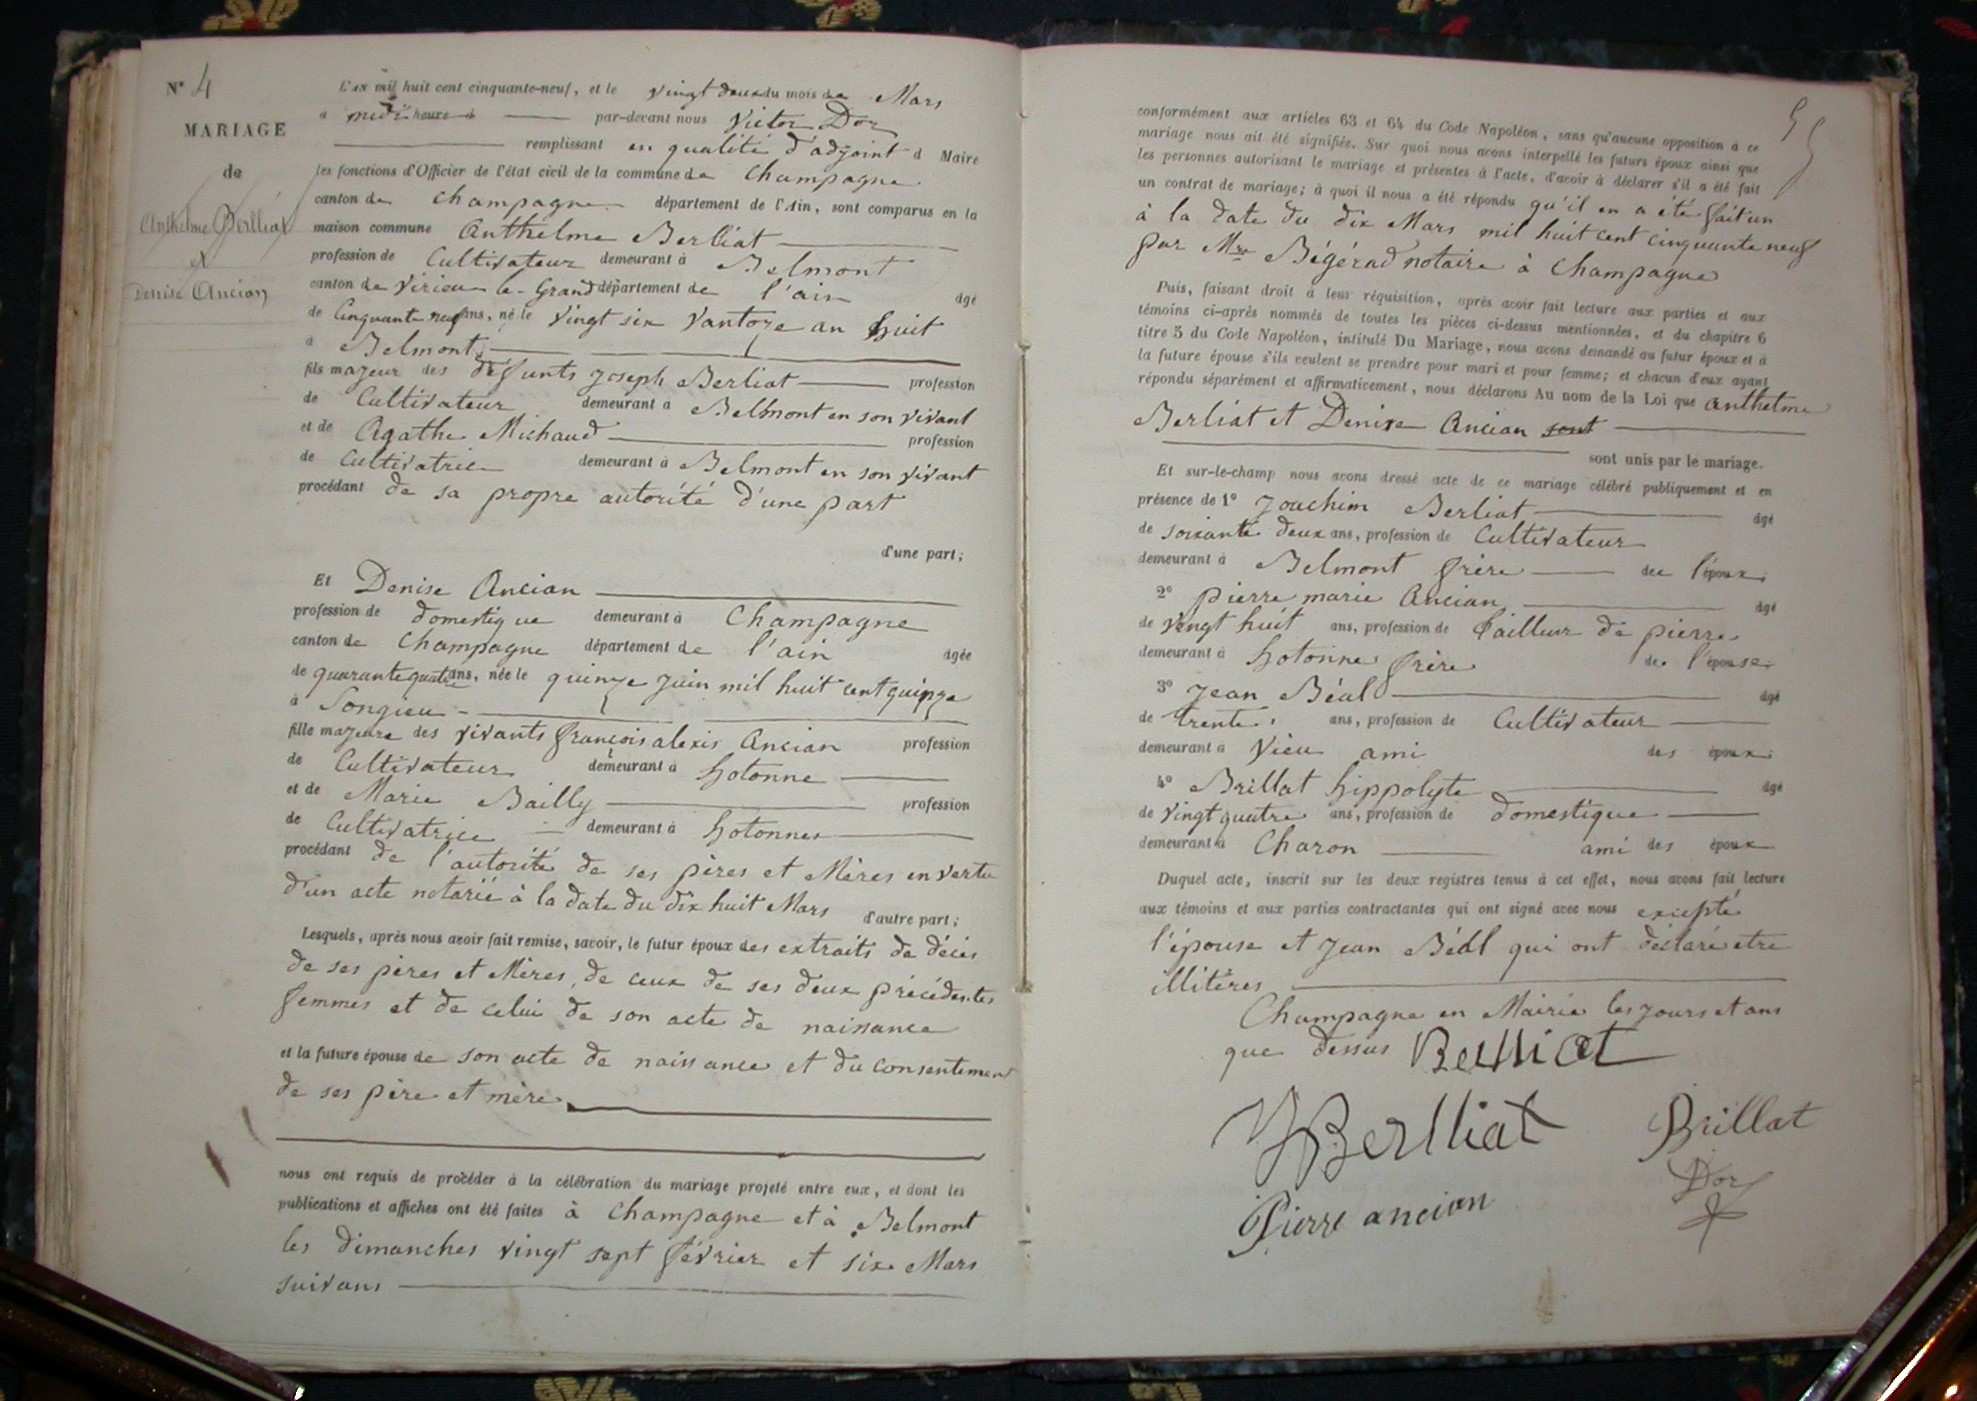 N° 4
MARIAGE
de
Anthelme Berlliat
et
Denise Ancian
L'an mil huit cent cinquante-neuf, et le vingt deux du mois de Mars
à midi heure à par-devant nous Victor Dor
remplissant en qualité d'adjoint d Maire
les fonctions d'Officier de l'état civil de la commune de Champagne
canton de Champagne département de l'Ain, sont comparus en la
maison commune Anthelme Berliat
profession de Cultivateur demeurant à Belmont
canton de Virieu le Grand département de l'ain âgé
de Cinquante neuf ans, né le vingt six Vantoze an huit
à Belmont
fils majeur des défunts Joseph Berliat profession
de Cultivateur demeurant à Belmont en son vivant
et de Agathe Michaud profession
de Cultivatrice demeurant à Belmont en son vivant
procédant de sa propre autorité d'une part
d'une part;
Et Denise Ancian
profession de domestique demeurant à Champagne
canton de Champagne département de l'ain âgée
de quarante quatre ans, née le quinze juin mil huit cent quinze
à Songieu
fille majeure des vivants françois alexis Ancian profession
de Cultivateur demeurant à hotonne
et de Marie Bailly profession
de Cultivatrice demeurant à hotonnes
procédant de l'autorité de ses pères et Mères en vertu
d'un acte notarié à la date du dix huit Mars d'autre part;
Lesquels, après nous avoir fait remise, savoir, le futur époux des extraits de décès
de ses pères et Mères, de ceux de ses deux précédentes
femmes et de celui de son acte de naissance
et la future épouse de son acte de naissance et du consentement
de ses père et mère
nous ont requis de procéder à la célébration du mariage projeté entre eux, et dont les
publications et affiches ont été faites à Champagne et à Belmont
les dimanches vingt sept février et six Mars
suivans
conformément aux articles 63 et 64 du Code Napoléon, sans qu'aucune opposition à ce
mariage nous ait été signifiée. Sur quoi nous avons interpellé les futurs époux ainsi que
les personnes autorisant le mariage et présentes à l'acte, d'avoir à déclarer s'il a été fait
un contrat de mariage; à quoi il nous a été répondu qu'il en a été fait un
à la date du dix Mars mil huit cent cinquante neuf
par Mre Bégérad notaire à Champagne
Puis, faisant droit à leur réquisition, après avoir fait lecture aux parties et aux
témoins ci-après nommés de toutes les pièces ci-dessus mentionnées, et du chapitre 6
titre 5 du Code Napoléon, intitulé Du Mariage, nous avons demandé au futur époux et à
la future épouse s'ils veulent se prendre pour mari et pour femme; et chacun d'eux ayant
répondu séparément et affirmativement, nous déclarons Au nom de la Loi que Anthelme
Berliat et Denise Ancian sont
sont unis par le mariage.
Et sur-le-champ nous avons dressé acte de ce mariage célébré publiquement et en
présence de 1° Joachim Berliat âgé
de soixante deux ans, profession de Cultivateur
demeurant à Belmont frère de l'époux
2° pierre marie Ancian âgé
de vingt huit ans, profession de tailleur de pierre
demeurant à hotonne frère de l'épouse
3° Jean Béal âgé
de trente ans, profession de Cultivateur
demeurant à Vieu ami des époux
4° Brillat hippolyte âgé
de vingt quatre ans, profession de domestique
demeurant à Charon ami des époux
Duquel acte, inscrit sur les deux registres tenus à cet effet, nous avons fait lecture
aux témoins et aux parties contractantes qui ont signé avec nous excepté
l'épouse et Jean Béal qui ont déclaré etre
illitères
Champagne en Mairie les jours et ans
que dessus Berlliat
Berlliat Brillat
Dor
Pierre ancian